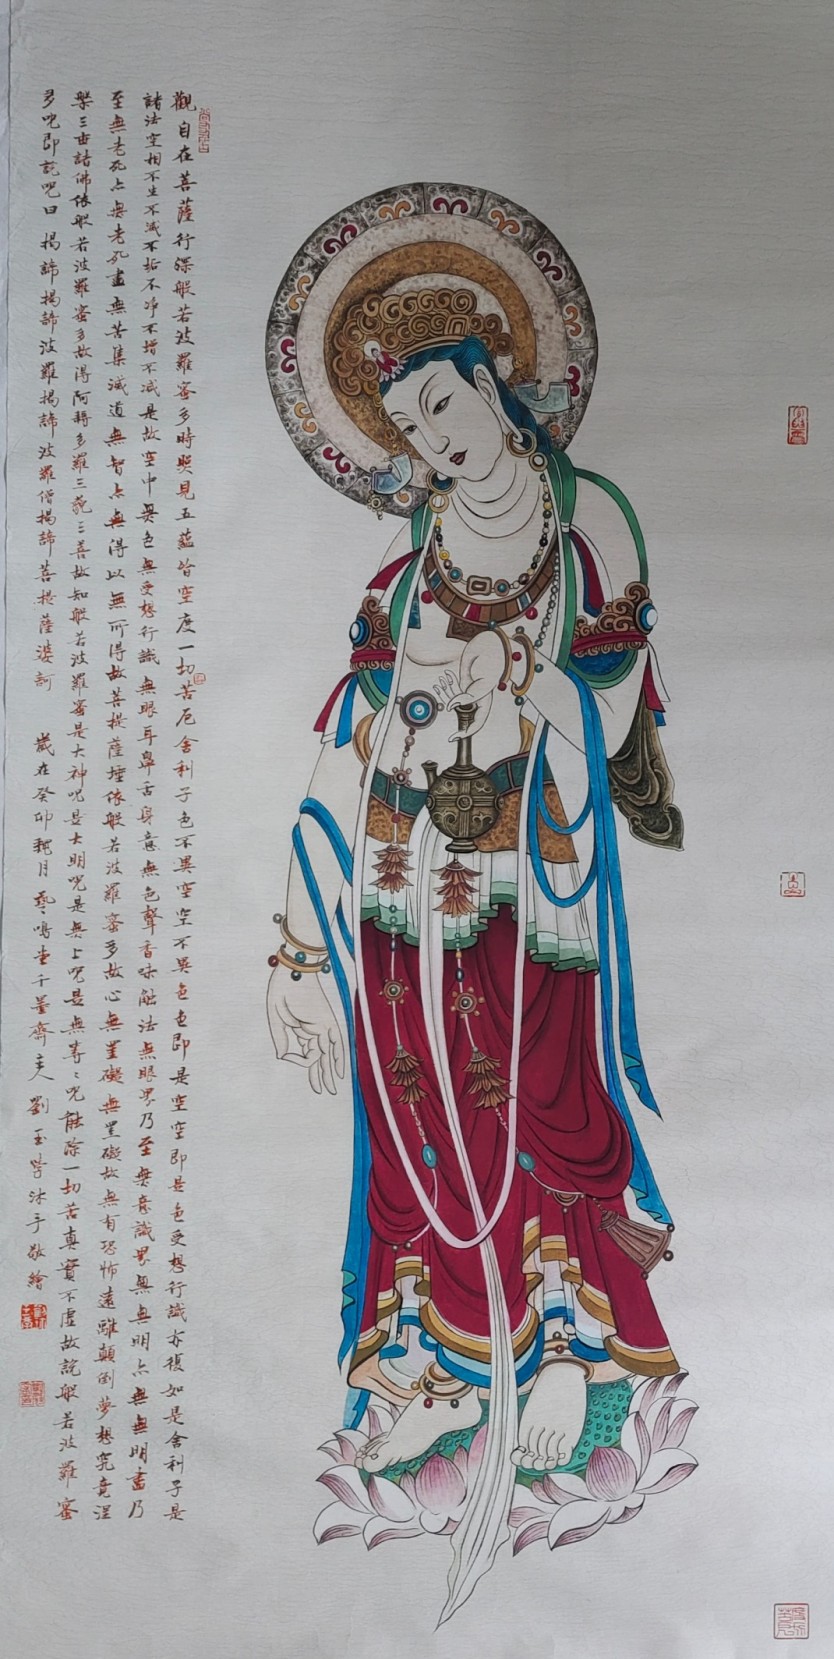 觀自在菩薩行深般若波羅蜜多時照見五蘊皆空度一切苦厄舍利子色不異空空不異色色即是空空即是色受想行識亦復如是舍利子是
諸法空相不生不滅不垢不淨不增不減是故空中無色無受想行識無眼耳鼻舌身意無色聲香味觸法無眼界乃至無意識界無無明亦無無明盡乃
至無老死亦無老死盡無苦集滅道無智亦無得以無所得故菩提薩埵依般若波羅蜜多故心無罣礙無罣礙故無有恐怖遠離顛倒夢想究竟涅
槃三世諸佛依般若波羅蜜多故得阿耨多羅三藐三菩故知般若波羅蜜是大神呪是大明呪是無上呪是無等〻呪能除一切苦真實不虛故說般若波羅蜜
多呪即說呪曰 揭諦揭諦波羅揭諦波羅僧揭諦菩提薩婆訶 歲在癸卯月 藝鳴堂千墨齋主人 劉玉沐手敬繪